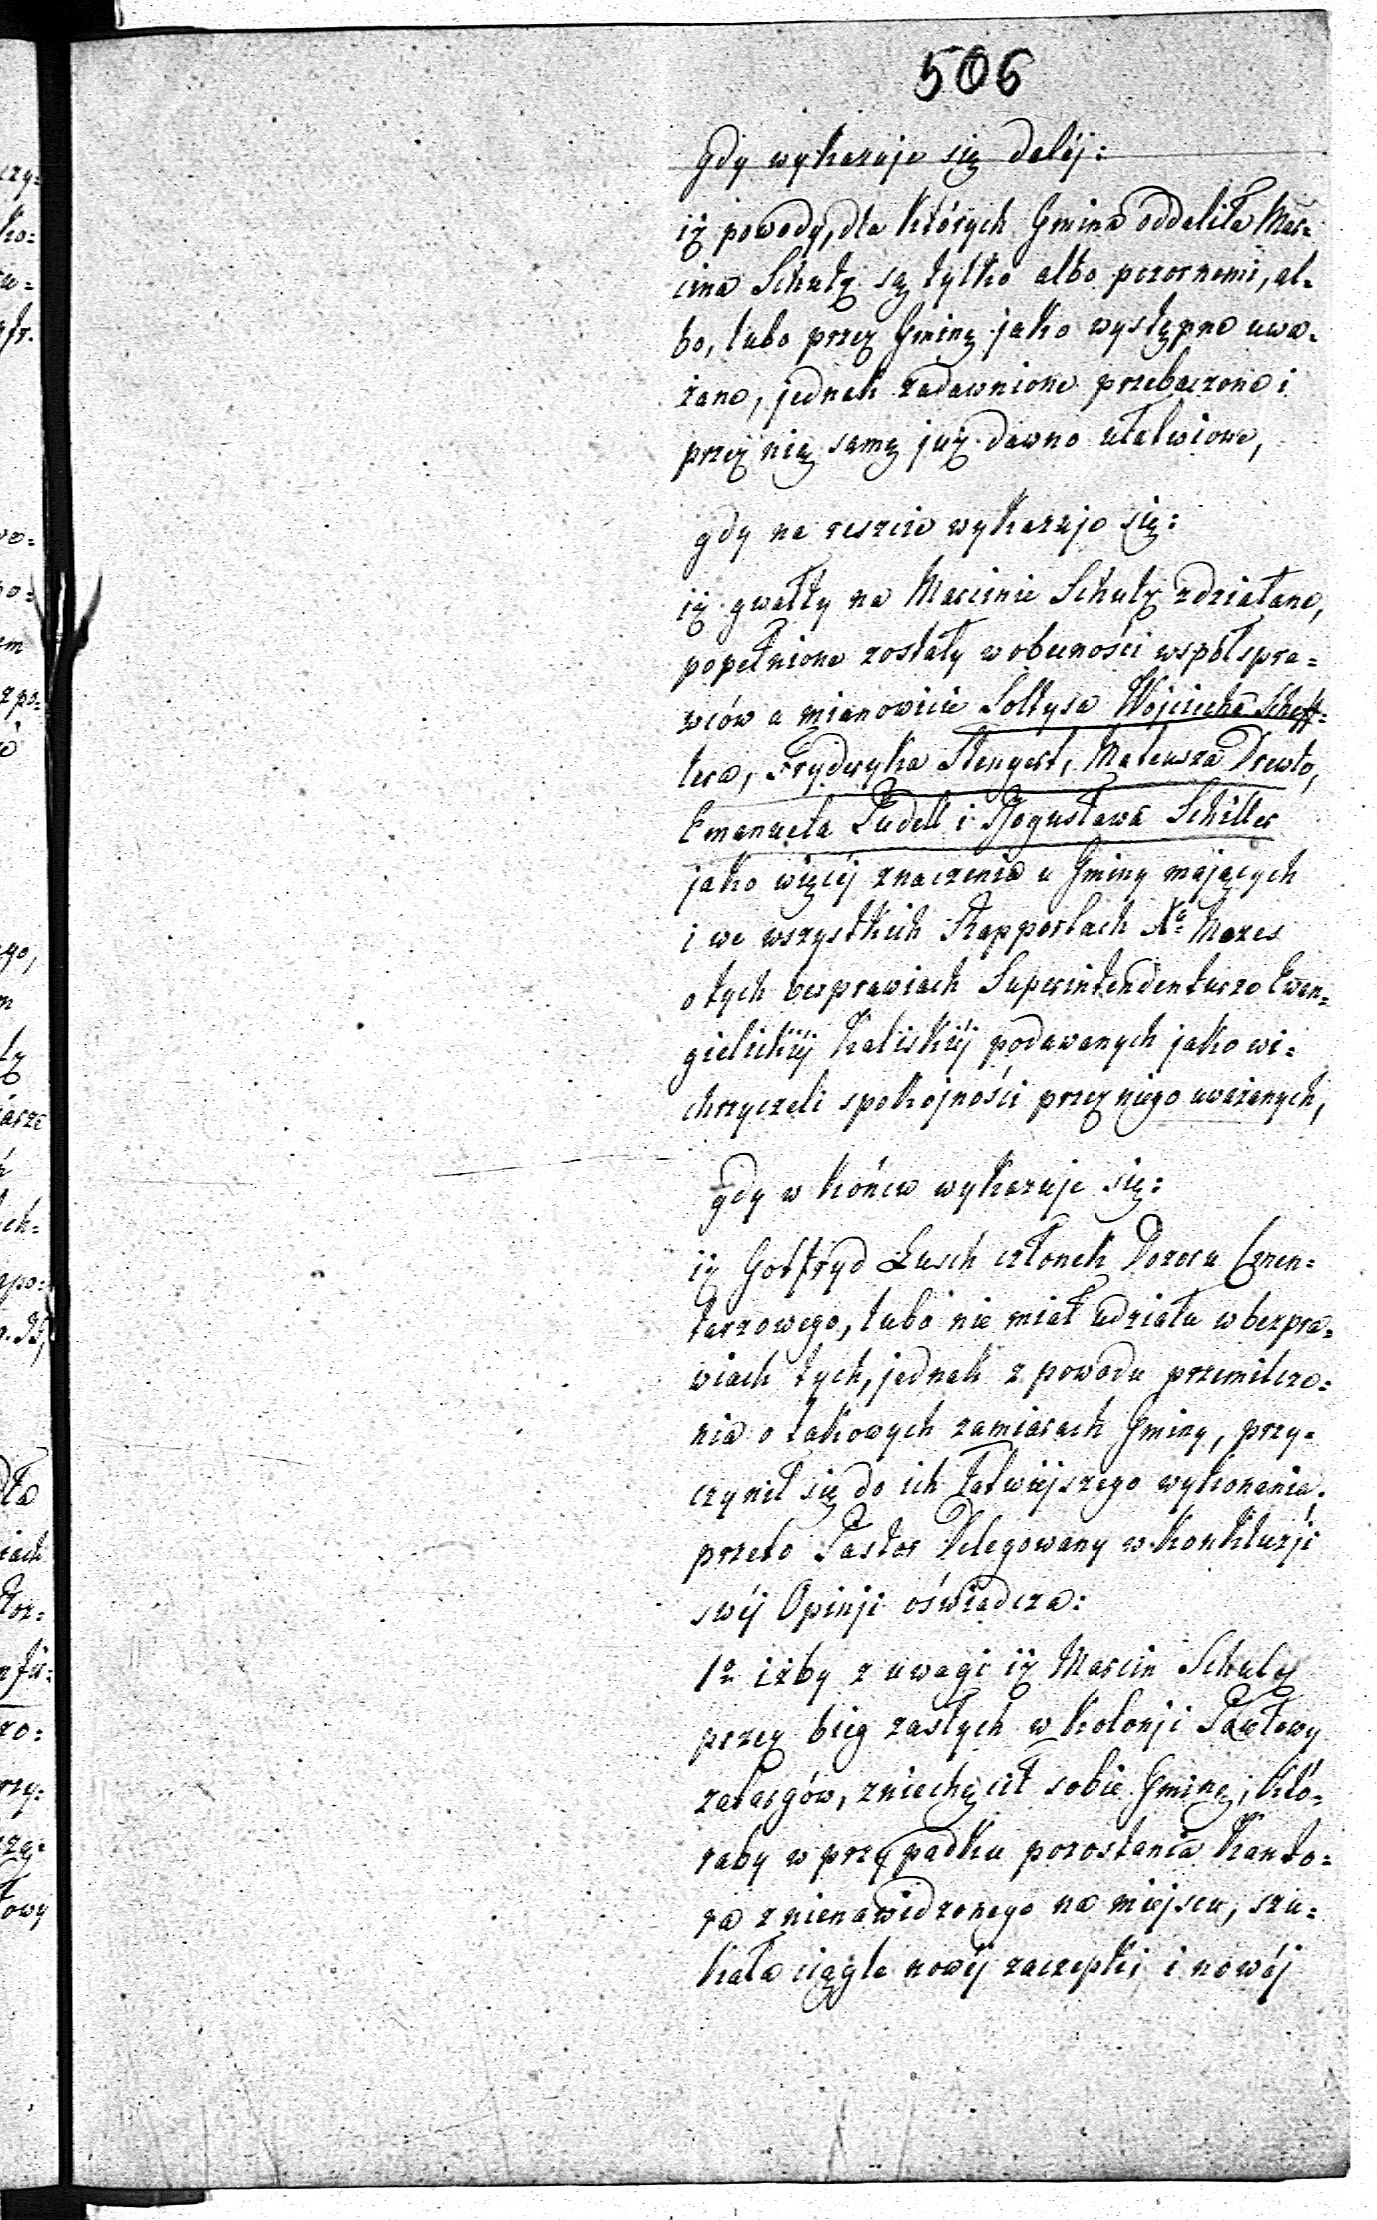 506
gdy wykazuje się daléj:
iż powody, dla których Gmina oddaliła Mar-
cina Schulz są tylko albo pozornemi, al-
bo, lubo przez Gminę jako występne uwa-
żane, jednak zadawnione przebaczone i
przez nię samę już dawno ułatwione,
gdy na reszcie wykazuje się:
iż gwałty na Marcinie Schulz zdziałane,
popełnione zostały w obecności współspra-
wców a mianowicie Sołtysa Wojciecha Scheff-
lera, Fryderyka Stengert, Mateusza Drewlo,
Emanuela Pudell i Bogusława Schiller
jako więcéj znaczenia u Gminy mających
i we wszystkich Rapportach Xa
o tych bezprawiach Superintendenturze Ewan-
gielickiéj Kaliskiéj podawanych jako wi-
chrzyczeli spokojności przez niego uważanych,
gdy w końcu wykazuje się:
iż Gotfryd Lusch członek Dozoru Cmen-
tarzowego, lubo nie miał udziału w bezpra-
wiach tych, jednak z powodu przemilcze-
nia o takowych zamiarach Gminy, przy-
czynił się do ich łatwiejszego wykonania;
przeto Pastor Delegowany w Konkluzji
swéj Opinji oświadcza:
1o iżby z uwagi iż Marcin Schulz
przez bieg zaszłych w Kolonji Pawłowy
zatargów, zniechęcił sobie Gminę, któ-
raby w przypadku pozostania Kanto-
ra znienawidzonego na miejscu, szu-
kała ciągle nowéj zaczepki i nowéj
czy-
ko-
fr.
em
zpo-
go,
m
ły
arze
ch-
dła
iach
zo-
rzy-
łowy